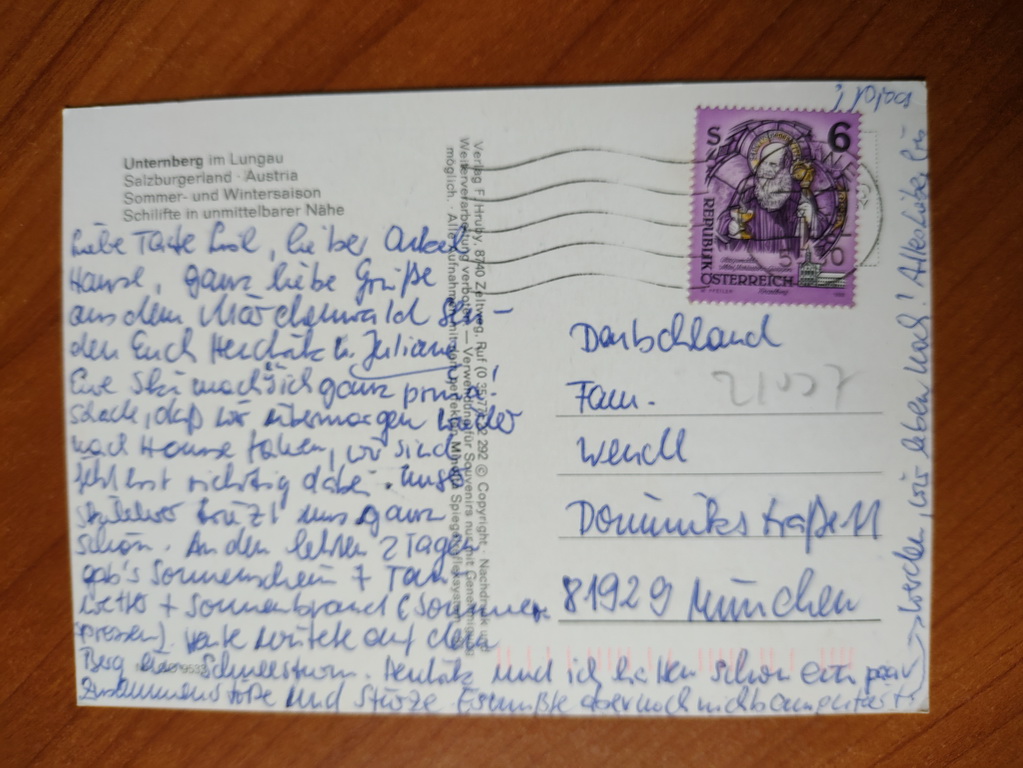 Unternberg im Lungau
Salzburgerland · Austria
Sommer- und Wintersaison
Schilifte in unmittelbarer Nähe
Liebe Tante, lieber Onkel
Hansl, ganz liebe Grüße
aus dem Märchenwald sen-
den Euch u. Juliane
Eure Ski machen sich ganz prima!
Schade, daß wir übermorgen wieder
nach Hause fahren, wir sind
jetzt erst richtig dabei. Unser
Skilehrer uns ganz
schön. An den letzten 2 Tagen
gab's Sonnenschein +
+ Sonnenbrand (Sommer-
sprossen). Heute wütete auf dem
Berg ein Schneesturm. und ich hatten schon ein paar
Zusammenstöße und Stürze. Es mußte aber noch nichts amputiert
werden, wir leben noch! Alles Liebe, bis
Verlag F. Hruby, 8740 Zeltweg, Ruf (0 35 77) 22 292 © Copyright. Nachdruck und
Weiterverarbeitung verboten — Verwendung für Souvenirs nur mit Genehmigung
möglich. · Alle Aufnahmen mit der perfekten Minolta Spiegelreflexsystem
S 6
REPUBLIK
ÖSTERREICH
Deutschland
Fam.
Wendl
Dominikstraße 11
81929 München